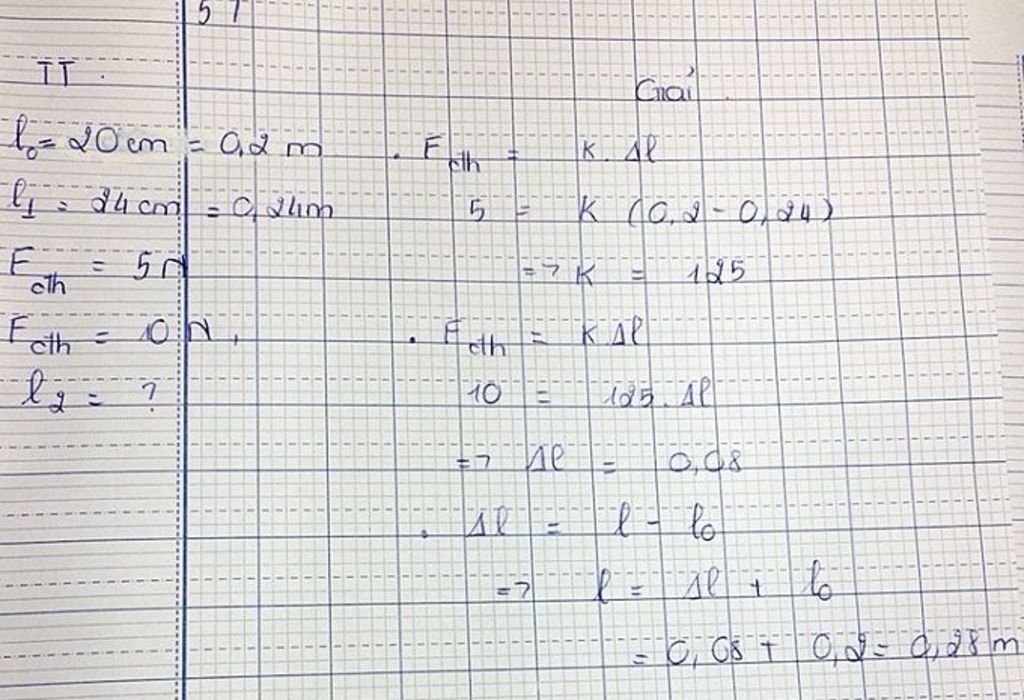 TT.
l₀ = 20 cm = 0,2 m
l₁ = 24 cm = 0,24m
Fđh = 5N
Fđh = 10 N,
l₂ = ?
Giải
. Fđh = K. Δl
5 = K (0,2 - 0,24)
=> K = 125
. Fđh = K Δl
10 = 125. Δl
=> Δl = 0,08
. Δl = l - l₀
=> l = Δl + l₀
= 0,08 + 0,2 = 0,28 m